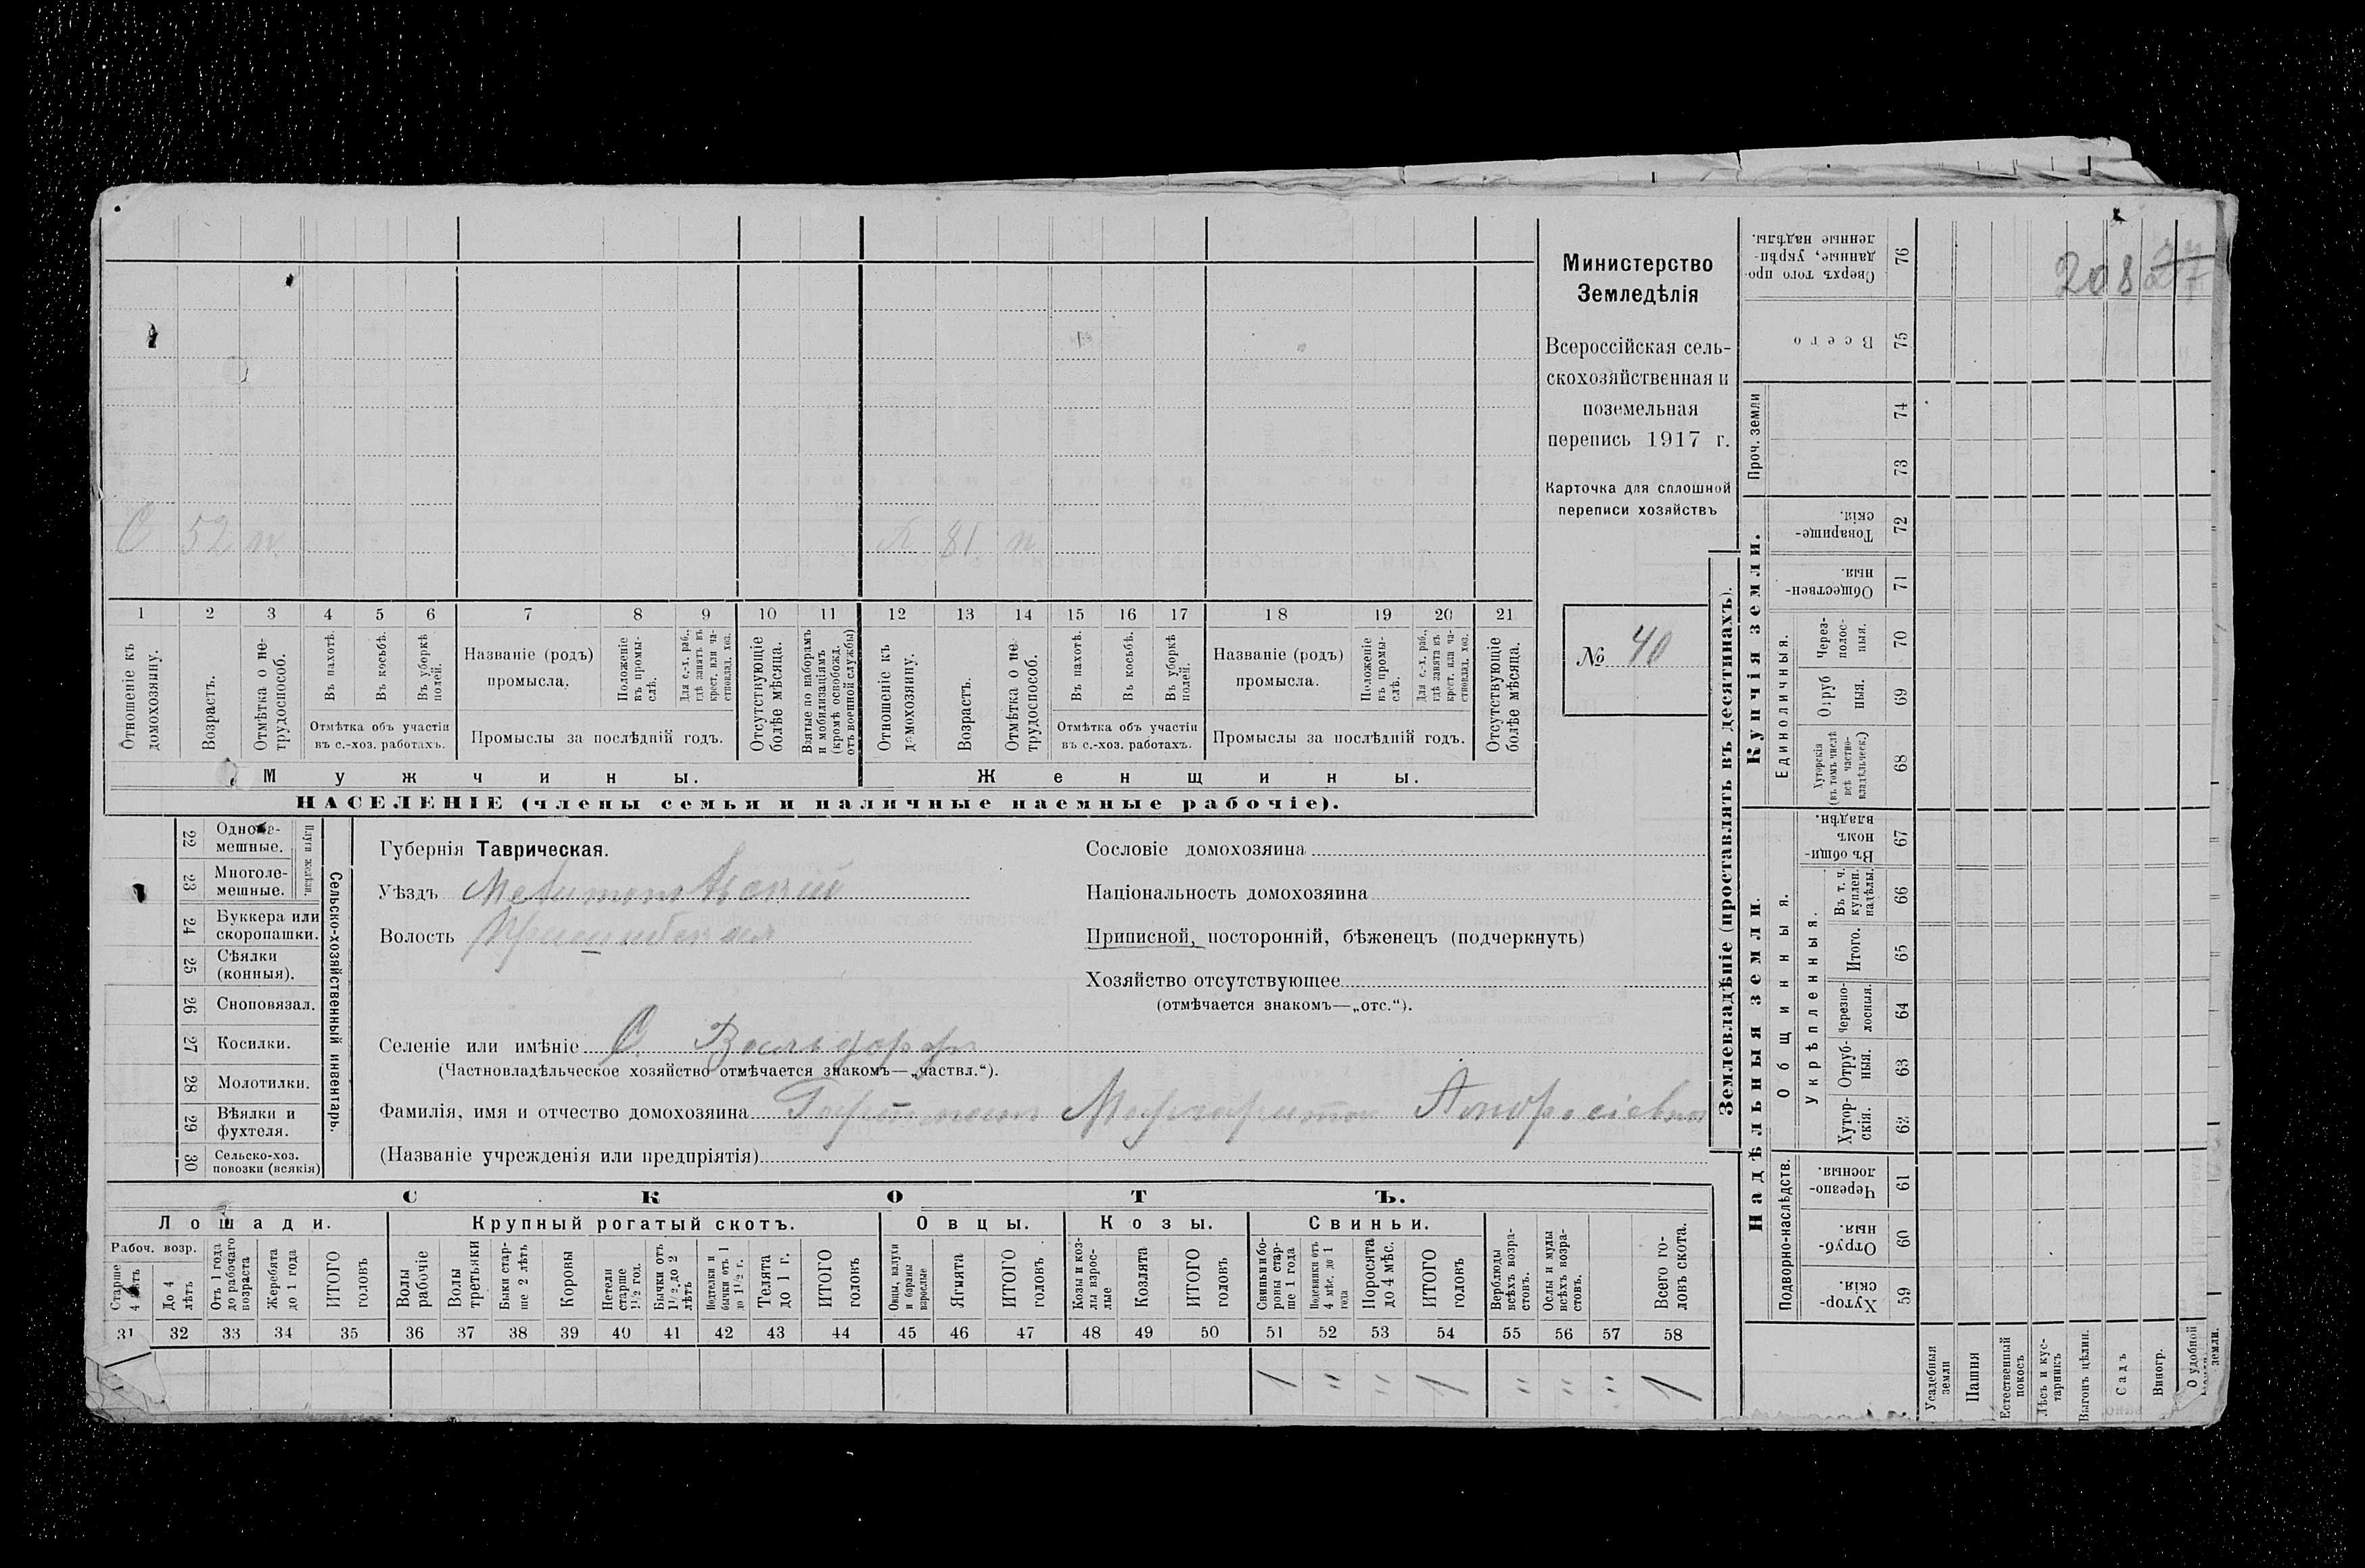 208
Министерство
Земледѣлія
Всероссійская сель-
скохозяйственная и
поземельная
перепись 1917 г.
Карточка для сплошной
переписи хозяйствъ
№ 40
С 52 н.
81 н
1 2 3 4 5 6 7 8 9 10 11 12 13 14 15 16 17 18 19 20 21
Отношеніе къ домохозяину.
Возрастъ.
Отмѣтка о не-трудоспособ.
Въ пахотѣ.
Въ косьбѣ.
Въ уборкѣ полей.
Отмѣтка объ участіи
въ с.-хоз. работахъ.
Названіе (родъ)
промысла.
Положеніе въ промы-слѣ.
Для с.-х. раб., гдѣ занятъ въ крест. или ча-стновлад. хоз.
Промыслы за послѣдній годъ.
Отсутствующіе болѣе мѣсяца.
Взятые по наборамъ и мобилизаціямъ (кромѣ освобожд. отъ военной службы)
Отношеніе къ домохозяину.
Возрастъ.
Отмѣтка о не-трудоспособ.
Въ пахотѣ.
Въ косьбѣ.
Въ уборкѣ полей.
Отмѣтка объ участіи
въ с.-хоз. работахъ.
Названіе (родъ)
промысла.
Положеніе въ промы-слѣ.
Для с.-х. раб., гдѣ занята въ крест. или ча-стновлад. хоз.
Промыслы за послѣдній годъ.
Отсутствующіе болѣе мѣсяца.
Мужчины.
Женщины.
НАСЕЛЕНІЕ (члены семьи и наличные наемные рабочіе).
Сельско-хозяйственный инвентарь.
Плуги желѣзн.
22 Одноле-мешные.
23 Многоле-мешные.
24 Буккера или скоропашки.
25 Сѣялки (конныя).
26 Сноповязал.
27 Косилки.
28 Молотилки.
29 Вѣялки и фухтеля.
30 Сельско-хоз. повозки (всякія)
Губернія Таврическая.
Уѣздъ Мелитопольскій
Волость Пришибская
Сословіе домохозяина
Національность домохозяина
Приписной, посторонній, бѣженецъ (подчеркнуть)
Хозяйство отсутствующее
(отмѣчается знакомъ—„отс.“).
Селеніе или имѣніе С. Вальдорфъ
(Частновладѣльческое хозяйство отмѣчается знакомъ—„частвл.“).
Фамилія, имя и отчество домохозяина Маргарита Андреевна
(Названіе учрежденія или предпріятія)
СКОТЪ.
Лошади.
Крупный рогатый скотъ.
Овцы.
Козы.
Свиньи.
Рабоч. возр.
Старше 4 лѣтъ
До 4 лѣтъ
Отъ 1 года до рабочаго возраста
Жеребята до 1 года
ИТОГО головъ
Волы рабочіе
Волы третьяки
Быки стар-ше 2 лѣтъ
Коровы
Нетели старше 1½ год.
Бычки отъ 1½ до 2 лѣтъ
Подтелки и бычки отъ 1 до 1½ г.
Телята до 1 г.
ИТОГО головъ
Овцы, валухи и бараны взрослые
Ягнята
ИТОГО головъ
Козы и коз-лы взрос-лые
Козлята
ИТОГО головъ
Свиньи и бо-ровы стар-ше 1 года
Подсвинки отъ 4 мѣс. до 1 года
Поросята до 4 мѣс.
ИТОГО головъ
Верблюды всѣхъ возра-стовъ.
Ослы и мулы всѣхъ возра-стовъ.
Всего го-ловъ скота.
31 32 33 34 35 36 37 38 39 40 41 42 43 44 45 46 47 48 49 50 51 52 53 54 55 56 57 58
1 " " 1 " " " 1
Землевладѣніе (проставлять въ десятинахъ).
Надѣльныя земли.
Купчія земли.
Сверхъ того про-данные, укрѣп-ленные надѣлы. 76
Всего 75
Проч. земли
74
73
Товарище-скія. 72
Обществен-ныя. 71
Единоличныя.
Через-полос-ныя. 70
Отруб ныя. 69
Хуторскія (въ томъ числѣ всѣ частно-владѣльческ.) 68
Общинныя.
Въ общин-номъ владѣн. 67
Укрѣпленныя.
Въ т. ч. куплен. надѣлы. 66
Итого. 65
Черезпо-лосныя. 64
Отруб-ныя. 63
Хутор-скія. 62
Подворно-наслѣдств.
Черезпо-лосныя. 61
Отруб-ныя. 60
Хутор-скія. 59
Усадебныя земли
Пашня
Естественный покосъ
Лѣсъ и кус-тарникъ
Выгонъ цѣлин.
Садъ
Виногр.